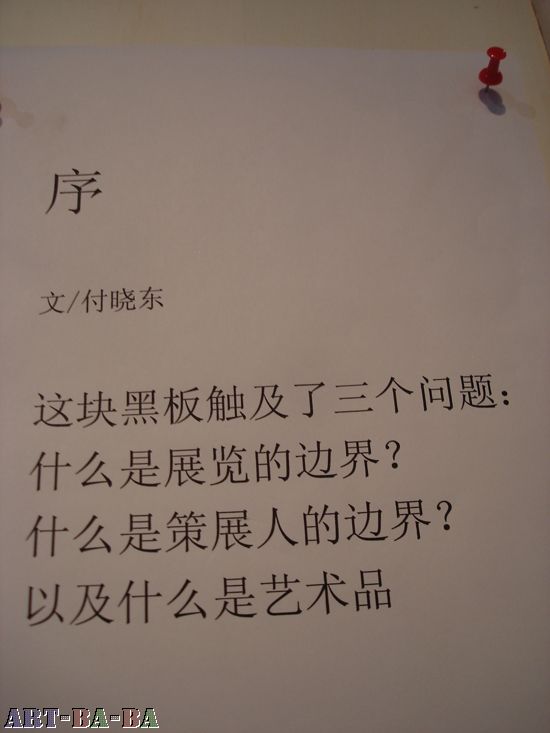 序
文/付晓东
这块黑板触及了三个问题：
什么是展览的边界？
什么是策展人的边界？
以及什么是艺术品
ART-BA-BA